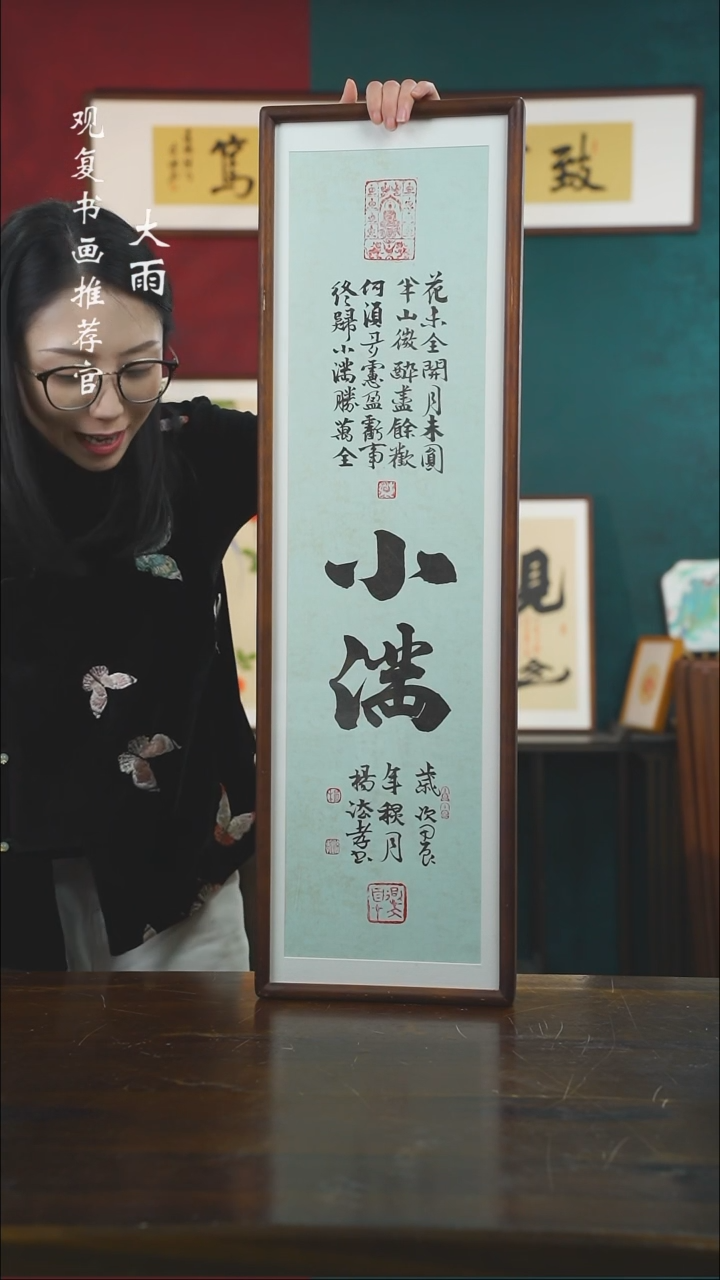 观复书画推荐官
大雨
篤
致
花未全開月未圓
半山微醉盡餘歡
何須多慮盈虧事
終歸小滿勝萬全
小滿
歲次甲辰
年穐月
楊法孝書
觀